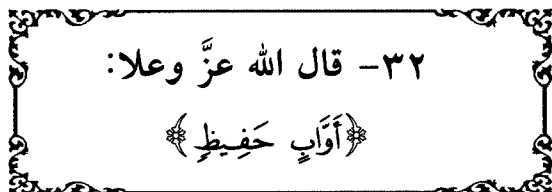 ٣٢- قال الله عزَّ وعلا:
﴿أَوَّابٍ حَفِيظٍ﴾